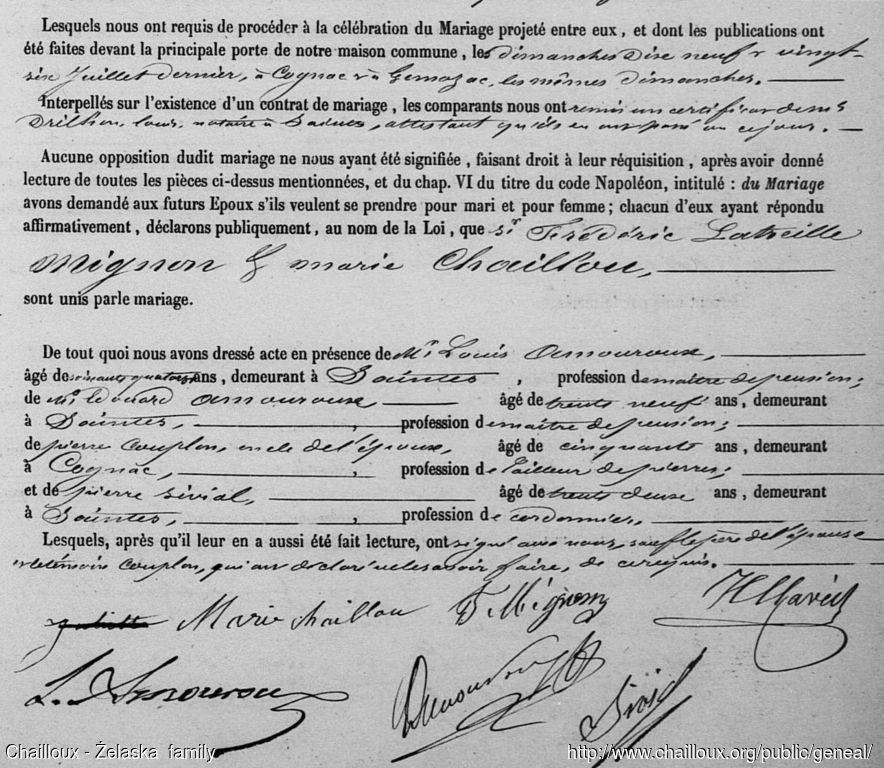 Lesquels nous ont requis de procéder à la célébration du Mariage projeté entre eux, et dont les publications ont
été faites devant la principale porte de notre maison commune, les dimanches dix neuf & vingt-
six Juillet dernier, à Cognac & à Gemozac, les mêmes dimanches.
Interpellés sur l'existence d'un contrat de mariage, les comparants nous ont remis un certificat de me
Drilhon, louis, notaire à Saintes, attestant qu'ils en ont passé un ce jour.
Aucune opposition dudit mariage ne nous ayant été signifiée, faisant droit à leur réquisition, après avoir donné
lecture de toutes les pièces ci-dessus mentionnées, et du chap. VI du titre du code Napoléon, intitulé : du Mariage
avons demandé aux futurs Epoux s'ils veulent se prendre pour mari et pour femme; chacun d'eux ayant répondu
affirmativement, déclarons publiquement, au nom de la Loi, que sr Frédéric Latreille
Mignon & marie Chaillou,
sont unis parle mariage.
De tout quoi nous avons dressé acte en présence de Mr Louis Amouroux,
âgé de soixante quatorze ans, demeurant à Saintes, profession de maître de pension;
de Mr Edouard Amouroux âgé de trente neuf ans, demeurant
à Saintes, profession de maître de pension;
de pierre Couplon, oncle de l'époux, âgé de cinquante ans, demeurant
à Cognac, profession de tailleur de pierres;
et de pierre sivial, âgé de trente deux ans, demeurant
à Saintes, profession de cordonnier.
Lesquels, après qu'il leur en a aussi été fait lecture, ont signé avec nous, sauf le père de l'épouse
et le témoin Couplon, qui ont déclaré ne le savoir faire, de ce requis.
Marie chaillou F Mignon
L. Amouroux
Chailloux - Żelaska family http://www.chailloux.org/public/geneal/